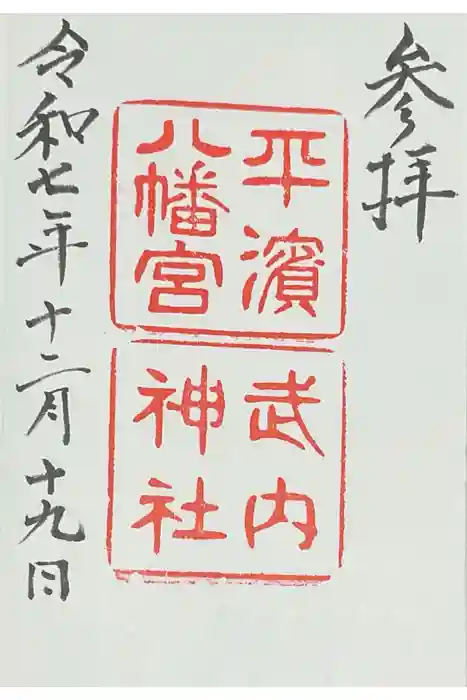 参拝
平濱
八幡宮
武内
神社
令和七年十二月十九日